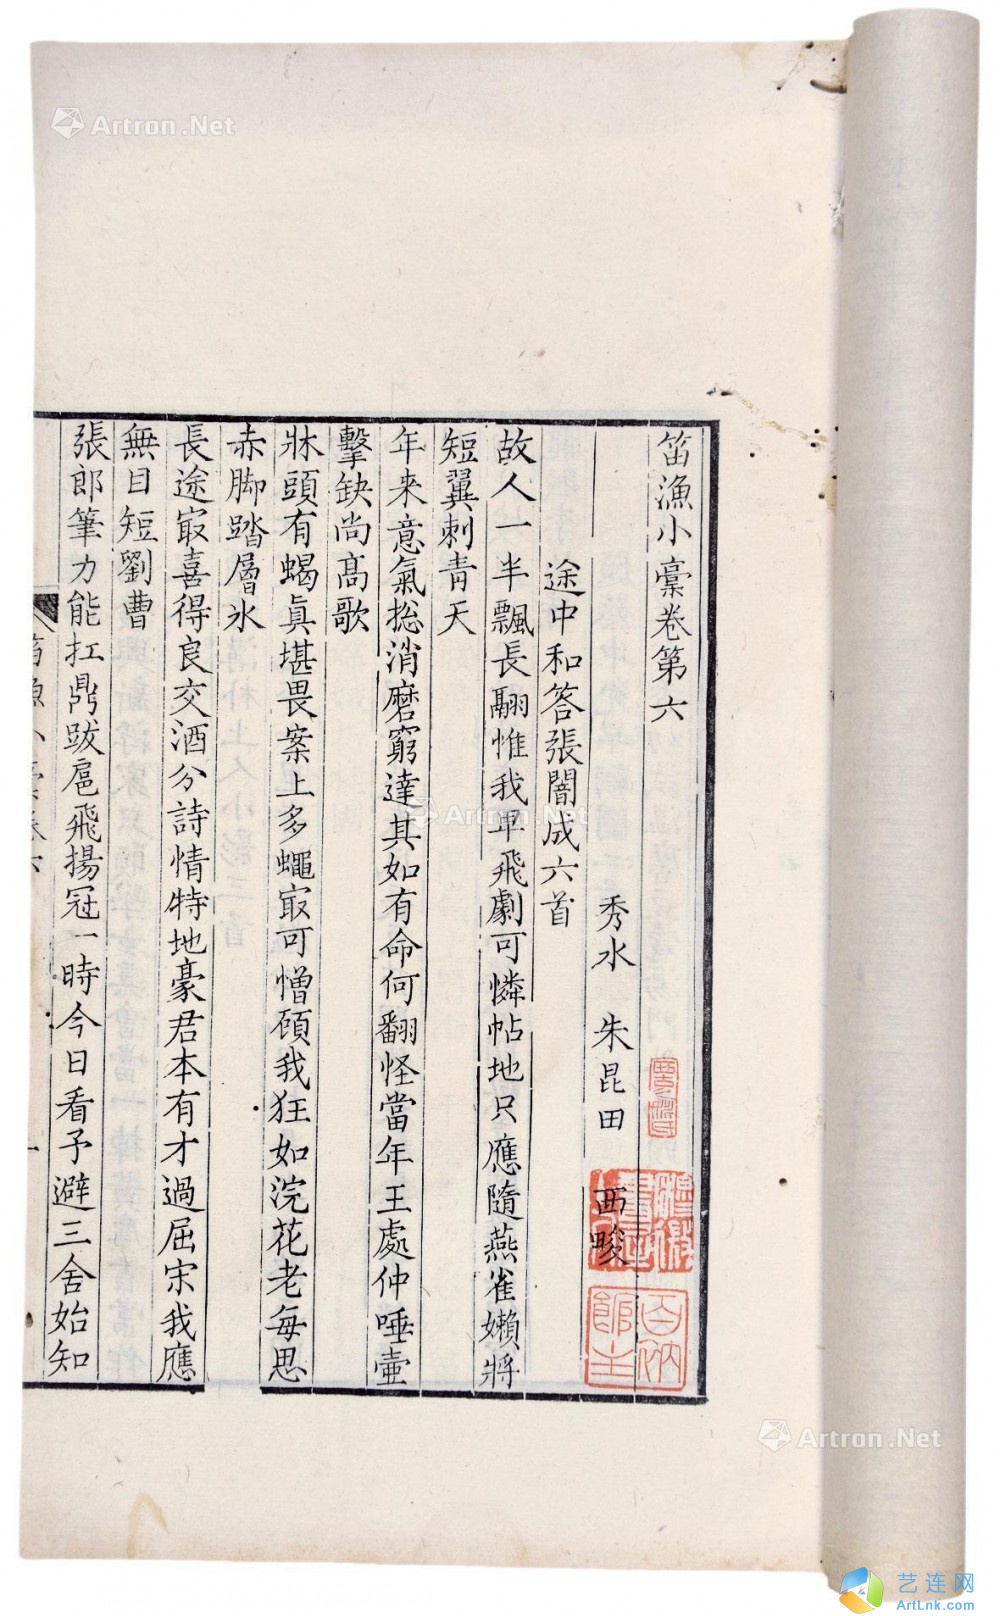 笛漁小稾卷第六
秀水　朱昆田　西畯
途中和答張闇成六首
故人一半飄長翮惟我卑飛劇可憐帖地只應隨燕雀嬾將
短翼刺青天
年來意氣捴消磨窮達其如有命何翻怪當年王處仲唾壷
擊缺尚高歌
牀頭有蝎眞堪畏案上多蠅㝡可憎頋我狂如浣花老每思
赤脚踏層冰
長途㝡喜得良交酒分詩情特地豪君本有才過屈宋我應
無目短劉曹
張郎筆力能扛鼎跋扈飛揚冠一時今日看予避三舍始知
一
百衲
館主
Artron.Net
Artron.Net
Artron.Net
艺连网
ArtLnk.com